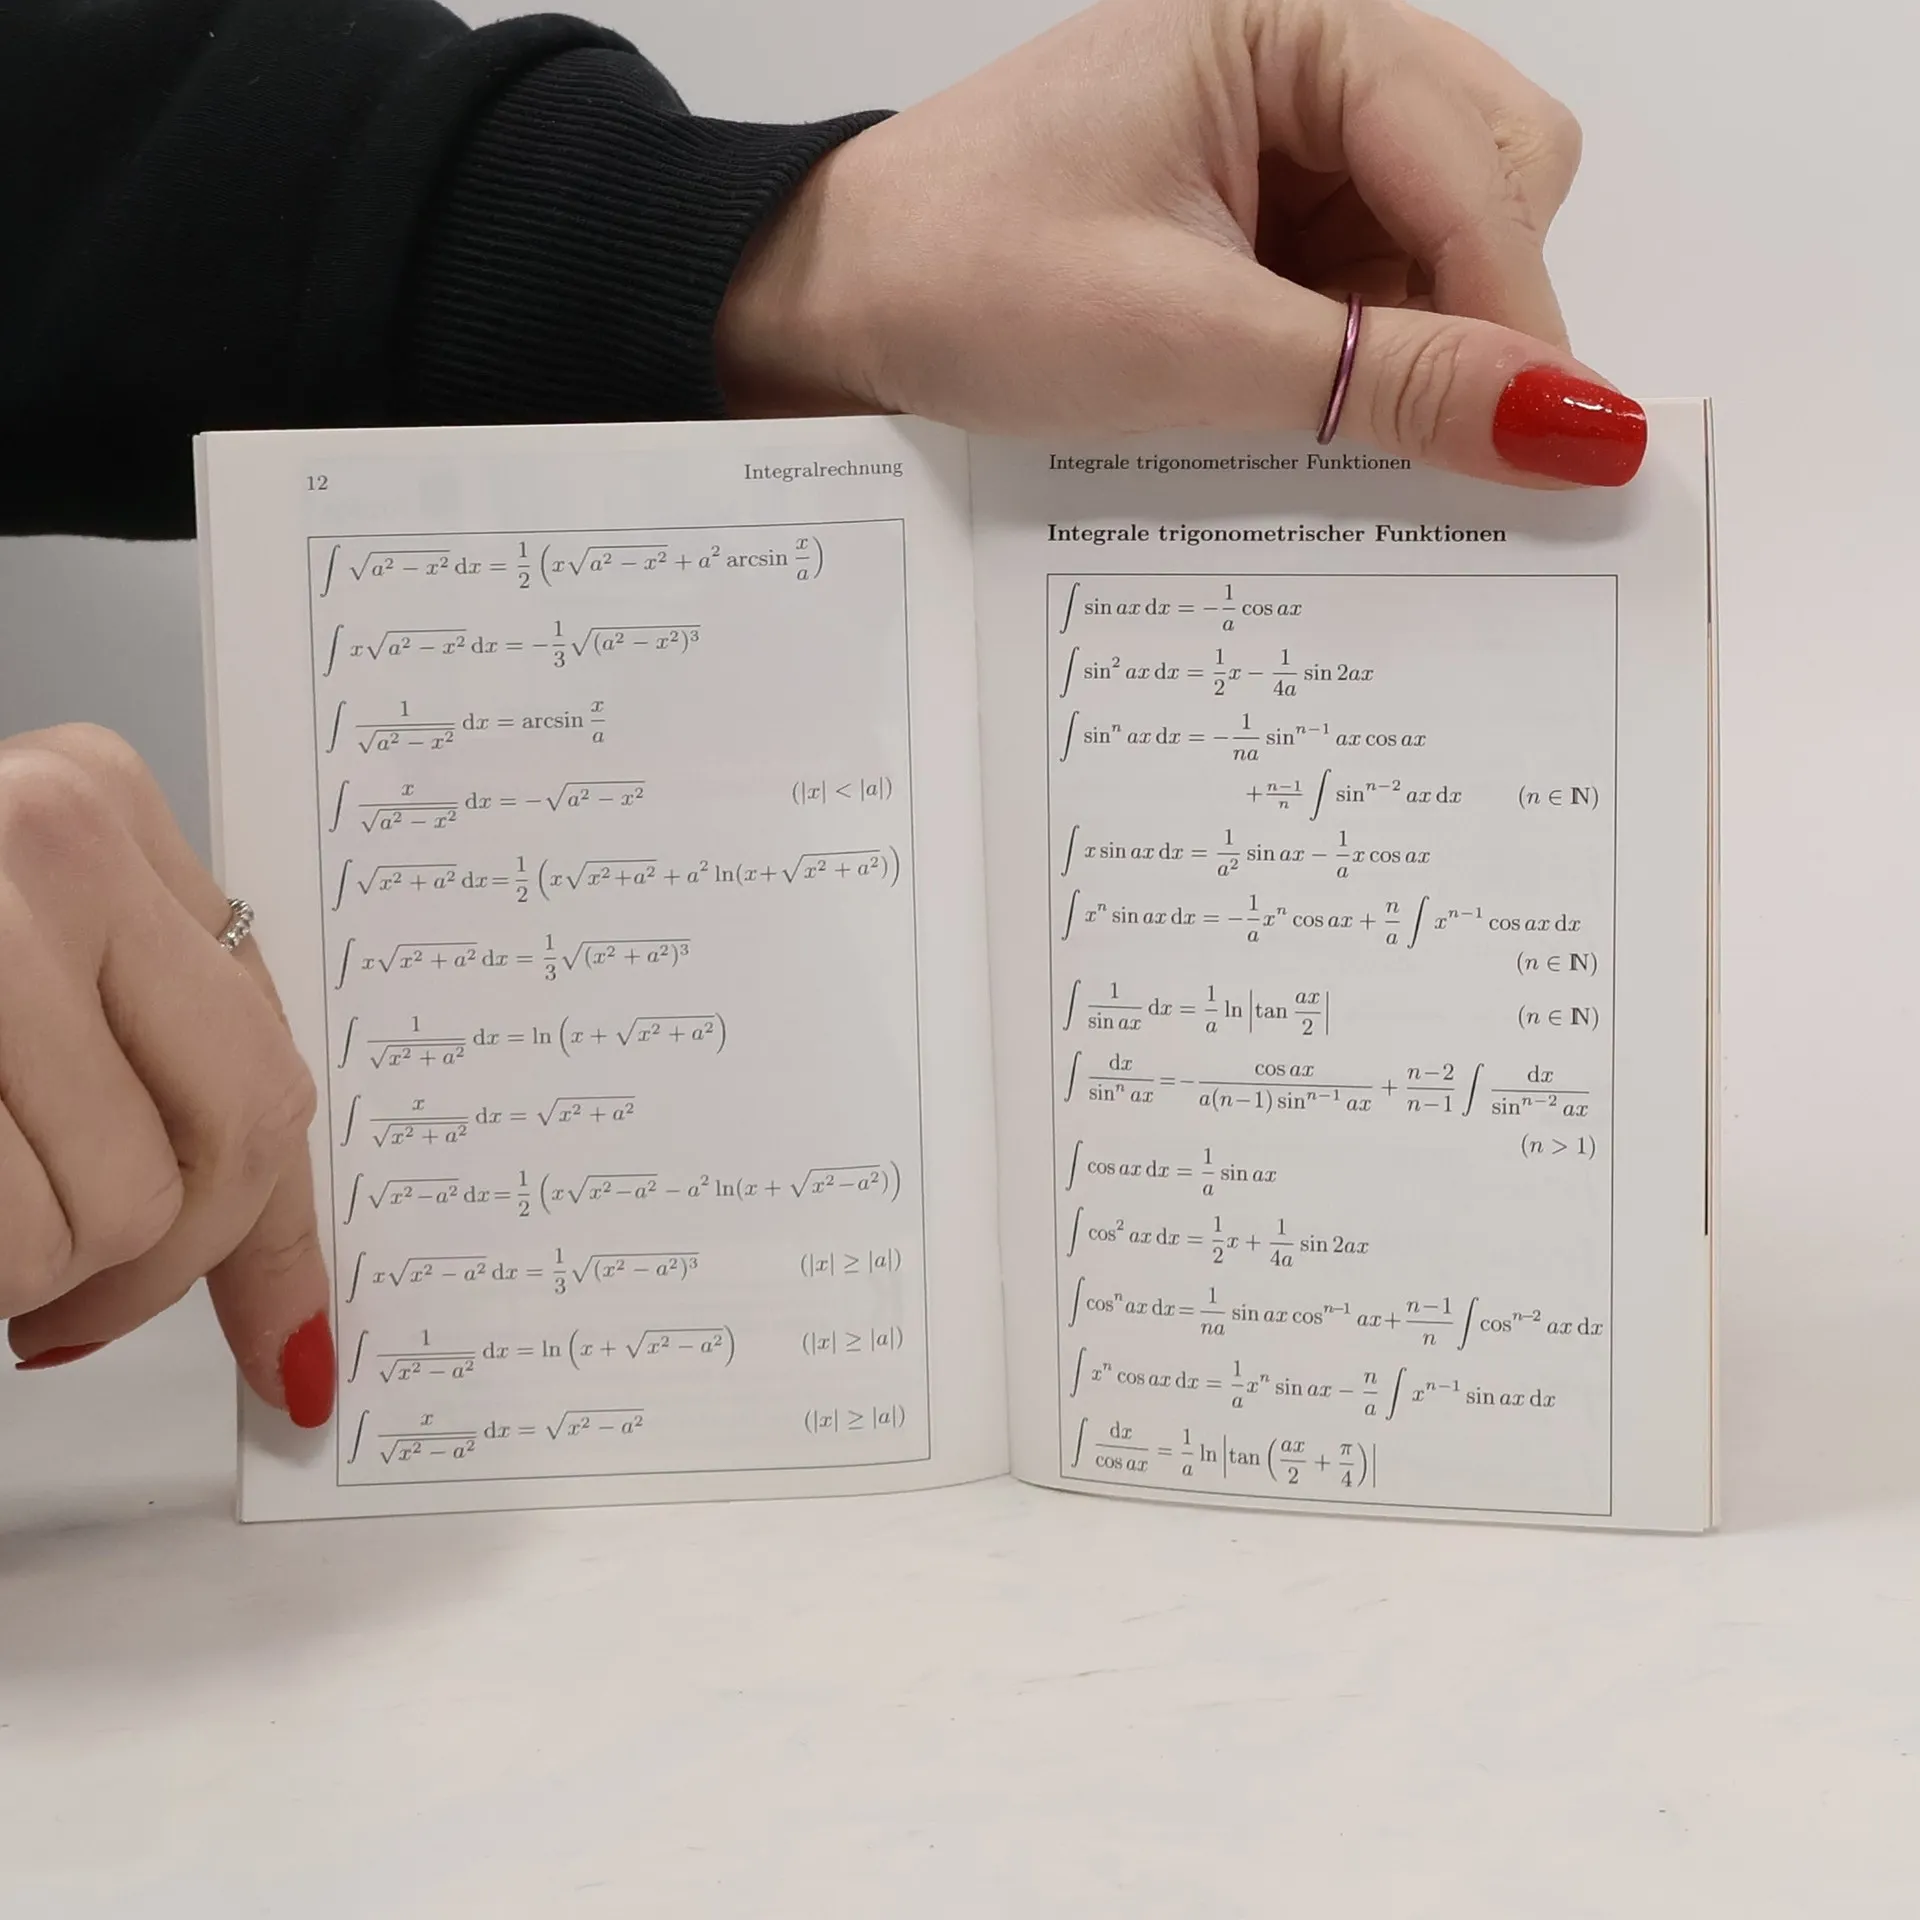 12 Integralrechnung
∫ √(a² − x²) dx = 1/2 (x√(a² − x²) + a² arcsin x/a)
∫ x√(a² − x²) dx = −1/3 √((a² − x²)³)
∫ 1/√(a² − x²) dx = arcsin x/a
∫ x/√(a² − x²) dx = −√(a² − x²) (|x| < |a|)
∫ √(x² + a²) dx = 1/2 (x√(x² + a²) + a² ln(x + √(x² + a²)))
∫ x√(x² + a²) dx = 1/3 √((x² + a²)³)
∫ 1/√(x² + a²) dx = ln (x + √(x² + a²))
∫ x/√(x² + a²) dx = √(x² + a²)
∫ √(x² − a²) dx = 1/2 (x√(x² − a²) − a² ln(x + √(x² − a²)))
∫ x√(x² − a²) dx = 1/3 √((x² − a²)³) (|x| ≥ |a|)
∫ 1/√(x² − a²) dx = ln (x + √(x² − a²)) (|x| ≥ |a|)
∫ x/√(x² − a²) dx = √(x² − a²) (|x| ≥ |a|)
Integrale trigonometrischer Funktionen
Integrale trigonometrischer Funktionen
∫ sin ax dx = −1/a cos ax
∫ sin² ax dx = 1/2 x − 1/(4a) sin 2ax
∫ sinⁿ ax dx = −1/(na) sinⁿ⁻¹ ax cos ax
+ (n−1)/n ∫ sinⁿ⁻² ax dx (n ∈ ℕ)
∫ x sin ax dx = 1/a² sin ax − 1/a x cos ax
∫ xⁿ sin ax dx = −1/a xⁿ cos ax + n/a ∫ xⁿ⁻¹ cos ax dx
(n ∈ ℕ)
∫ 1/(sin ax) dx = 1/a ln |tan ax/2| (n ∈ ℕ)
∫ dx/(sinⁿ ax) = − cos ax/(a(n−1) sinⁿ⁻¹ ax) + (n−2)/(n−1) ∫ dx/(sinⁿ⁻² ax)
(n > 1)
∫ cos ax dx = 1/a sin ax
∫ cos² ax dx = 1/2 x + 1/(4a) sin 2ax
∫ cosⁿ ax dx = 1/(na) sin ax cosⁿ⁻¹ ax + (n−1)/n ∫ cosⁿ⁻² ax dx
∫ xⁿ cos ax dx = 1/a xⁿ sin ax − n/a ∫ xⁿ⁻¹ sin ax dx
∫ dx/(cos ax) = 1/a ln |tan (ax/2 + π/4)|